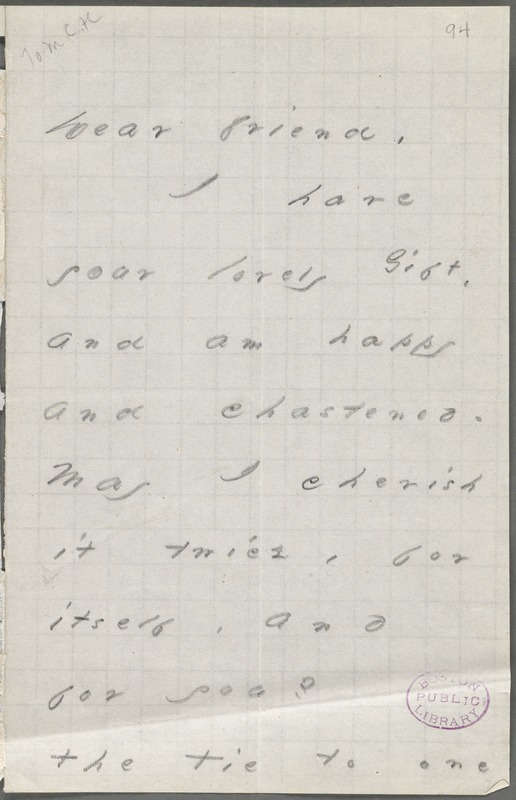 To M C. H
94
Dear friend.
I have
your lovely Gift,
and am happy
and chastened.
May I cherish
it twice, for
itself, and
for you?
BOSTON
PUBLIC
LIBRARY
the tie to one